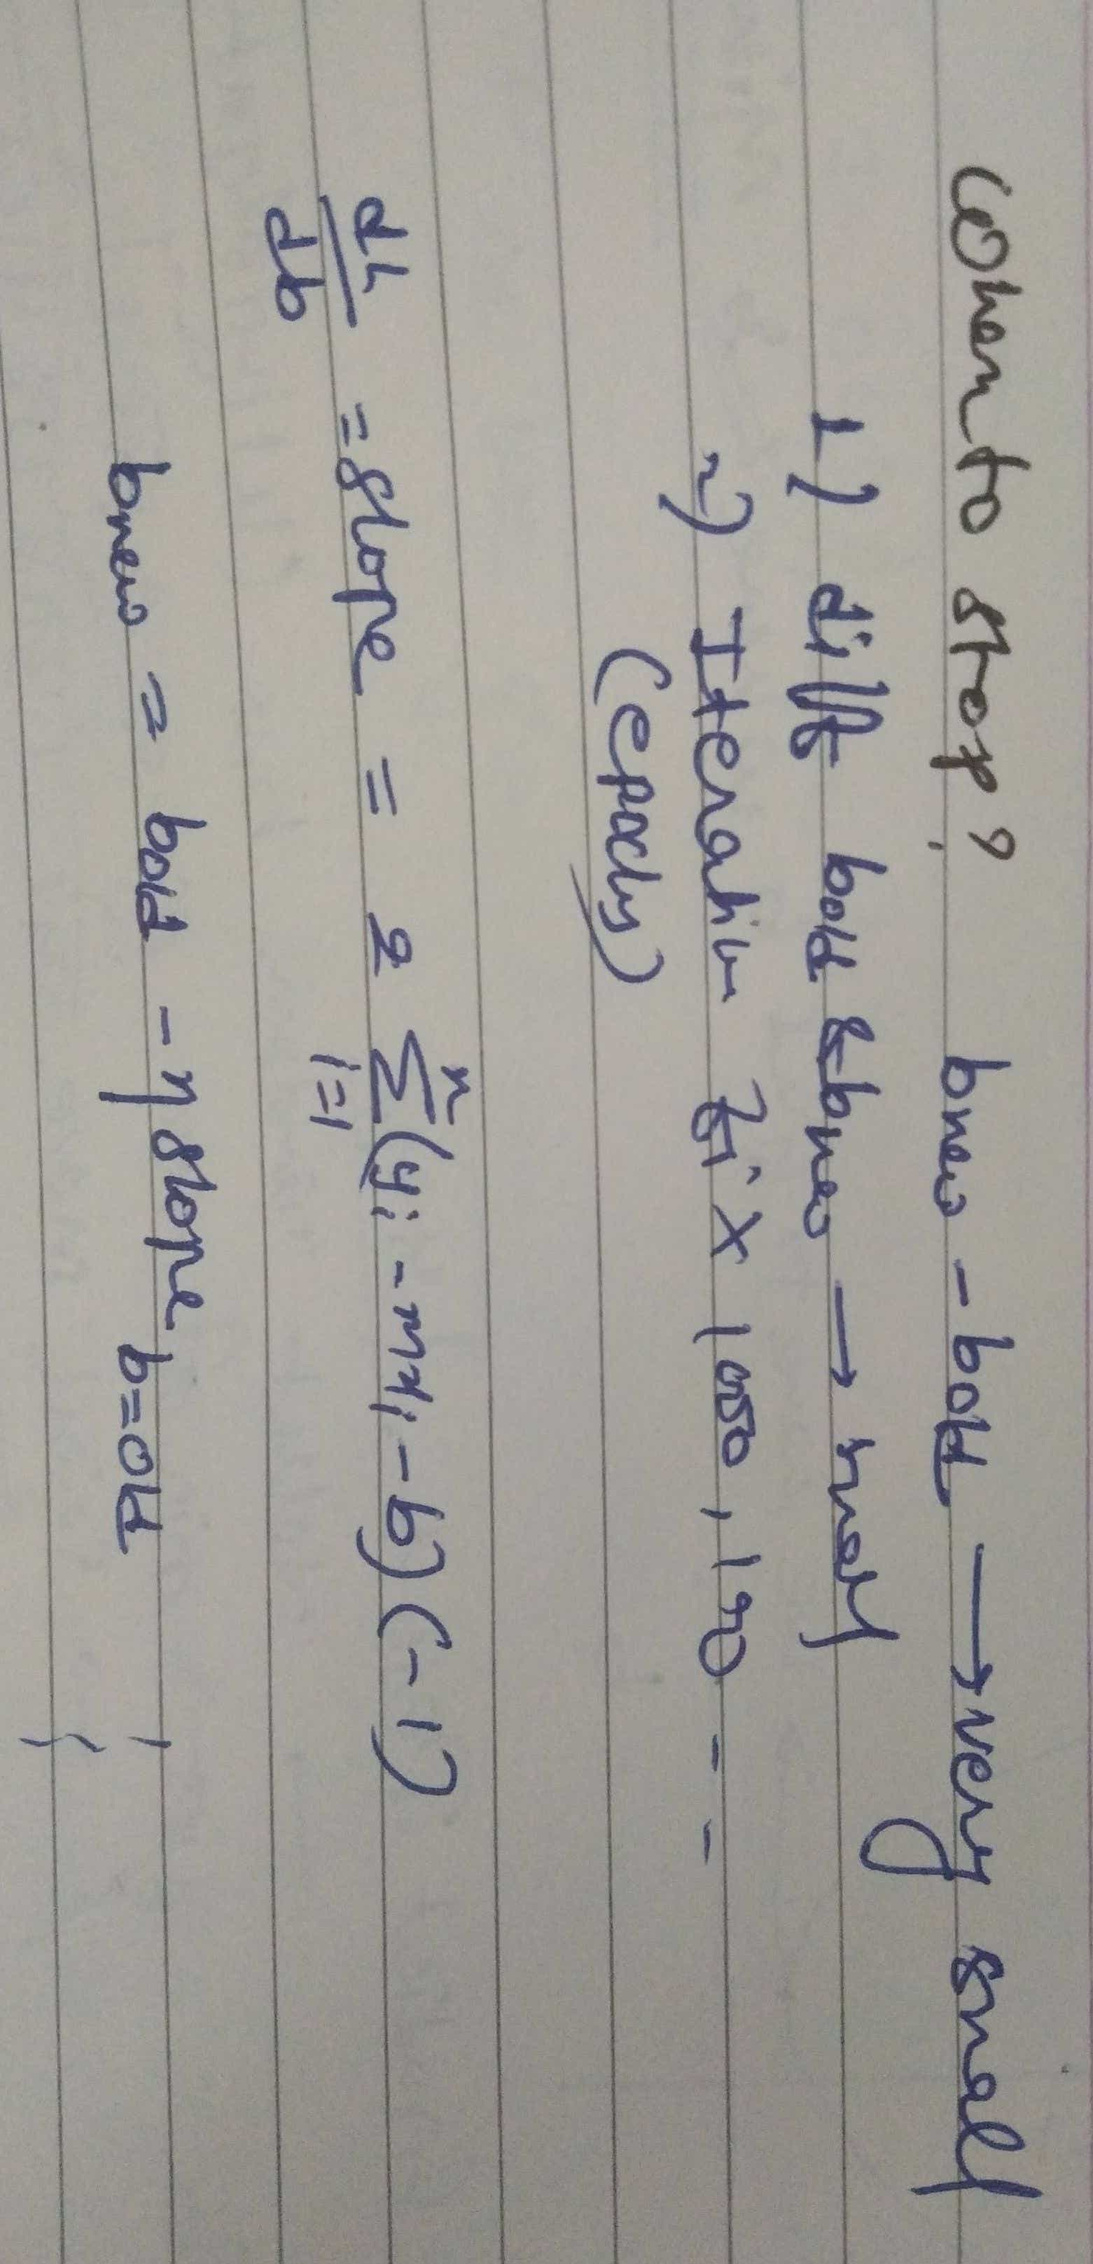 When to stop? bnew - bold → very small
1) diff bold & bnew → small
2) Iteration fix 1000, 100 - -
(epochs)
dL/db = slope = 2 Σ_{i=1}^{n} (yi - mxi - b)(-1)
bnew = bold - η slope b=old